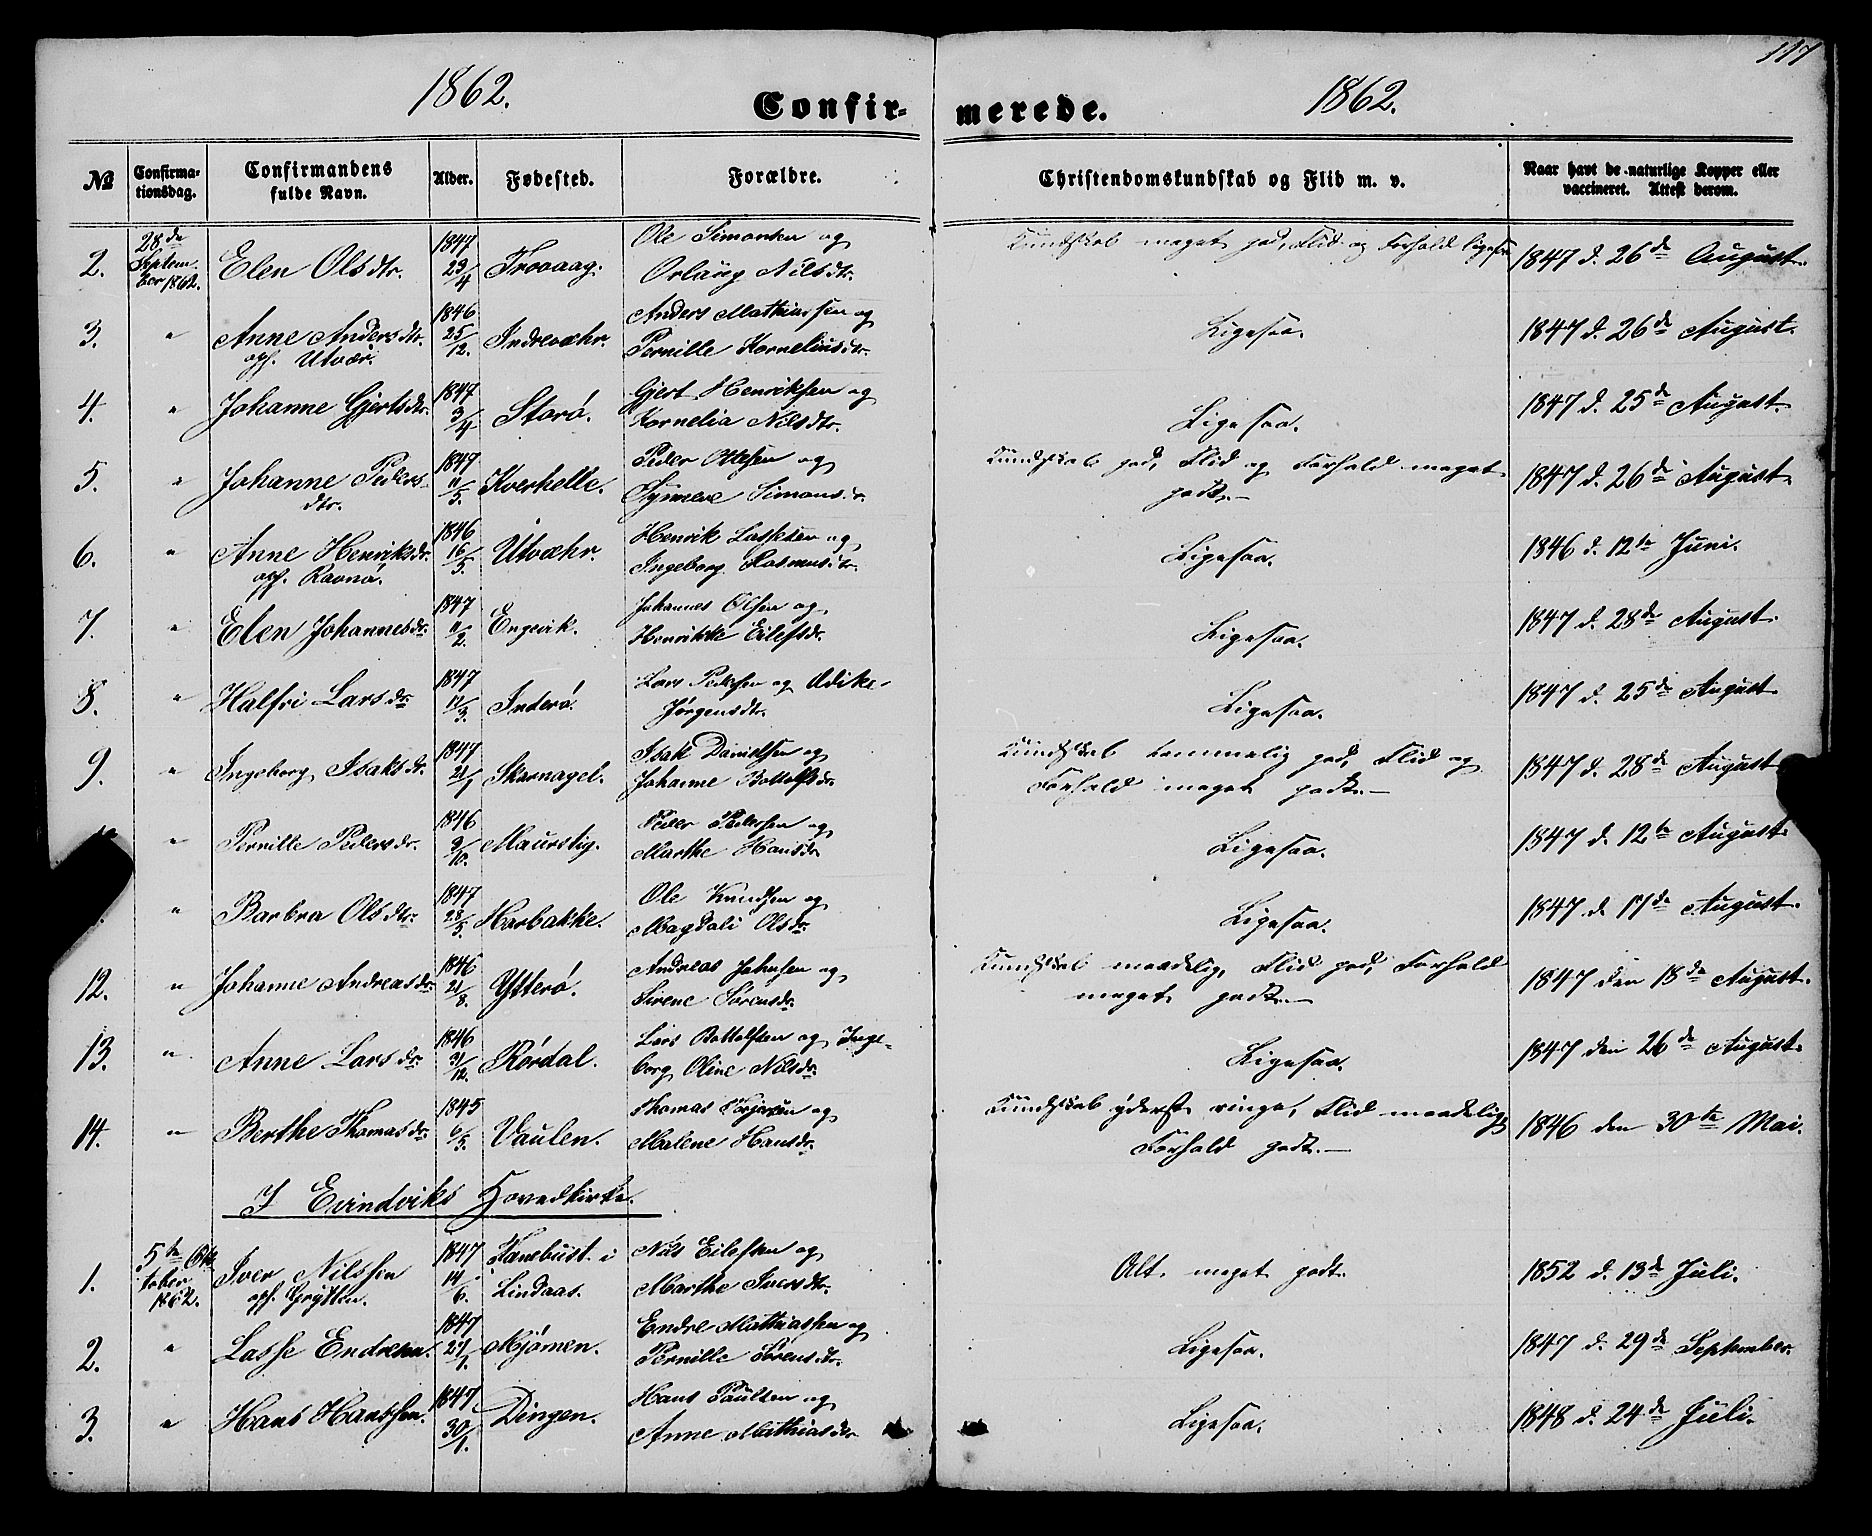 117
1862. Confir- merede. 1862.
№ Confirma-tionsdag. Confirmandens fulde Navn. Alder. Fødested. Forældre. Christendomskundskab og Flid m. v. Naar havt de naturlige Kopper eller vaccineret. Attest derom.
2. 28de Septem ber 1862. Elen Olsdtr. 1847 29/4 Trovaag. Ole Simonsen og Nilsdtr. Kundskab meget god, Flid og Forhold ligesaa 1847 d. 26de August.
3. " Anne Andersdtr. opf. Utvær. 1846 25/12. Indrevæhr. Anders Mathiassen og Pernille Korneliusdtr. Ligesaa. 1847 d. 26de August.
4. " Johanne Gjertsdtr. 1847 3/4 Storø. Gjert Henriksen og Kornelia Nilsdtr. Ligesaa. 1847 d. 25de August.
5. " Johanne Pedersdtr. 1847 11/5. Kverhelle. Peder Ottesen og Synneve Simonsdr. Kundskab god, Flid og Forhold meget godt.— 1847 d. 26de August.
6. " Anne Henriksdr. opf. Ravnø. 1846 16/5. Utvæhr. Henrik Lassesen og Ingeborg Rasmusdtr. Ligesaa. 1846 d. 12te Juni.
7. " Elen Johannesdr. 1847 11/2. Engevik. Johannes Olsen og Henrikke Eilefsdr. Ligesaa. 1847 d. 28de August.
8. " Halfri Larsdr 1847 12/3. Inderø. Lars Pedersen og Jørgensdtr. Ligesaa. 1847 d. 25de August
9. " Ingeborg Isaksdr. 1847 21/1 Skarnagel. Isak Danielsen og Johanne Bottolfsdr Kundskab temmelig god, Flid og Forhold meget godt.— 1847 d. 28de August
" Pernille Pedersdr. 1846 9/10. Maurstig. Peder Pedersen og Marthe Hansdr Ligesaa. 1847 d. 12te August.
" Barbra Olsdtr. 1847 28/5. Harbakke. Ole Knudsen og Magdali Olsdr. Ligesaa. 1847 d 17de August.
12. " Johanne Andreasdr. 1846 21/8. Ytterø. Andreas Johnsen og Sirene Sørensdr. Kundskab maadelig, Flid god, Forhold meget godt.— 1847 den 18de August.
13. " Anne Larsdr. 1846 31/12. Rørdal. Lars Bottolfsen og Inge- borg Oline Nilsdr. Ligesaa. 1847 den 26de August.
14. " Berthe Thomasdr. 1845 6/5. Vaulen. Thomas og Malene Hansdr. Kundskab yderst ringe, Flid maadelig, Forhold godt.— 1846 den 30te Mai.
I Evindviks Hovedkirke.
1. 5te Oktober 1862. Iver Nilssen opf. Grytten. 1847 14/6. Fanebust i Lindaas. Nils Eilefsen og Marthe Iversdtr. Alt meget godt. 1852 d. 13de Juli.
2. " Lasse Endresen. 1847 27/1. Mjømen. Endre Mathiassen og Pernille Sørensdtr. Ligesaa. 1847 d. 29de September.
3. " Hans Hanssen. 1847 30/1. Dingen. Hans Paulsen og Anne Mathiasdtr Ligesaa. 1848 d. 24de Juli.